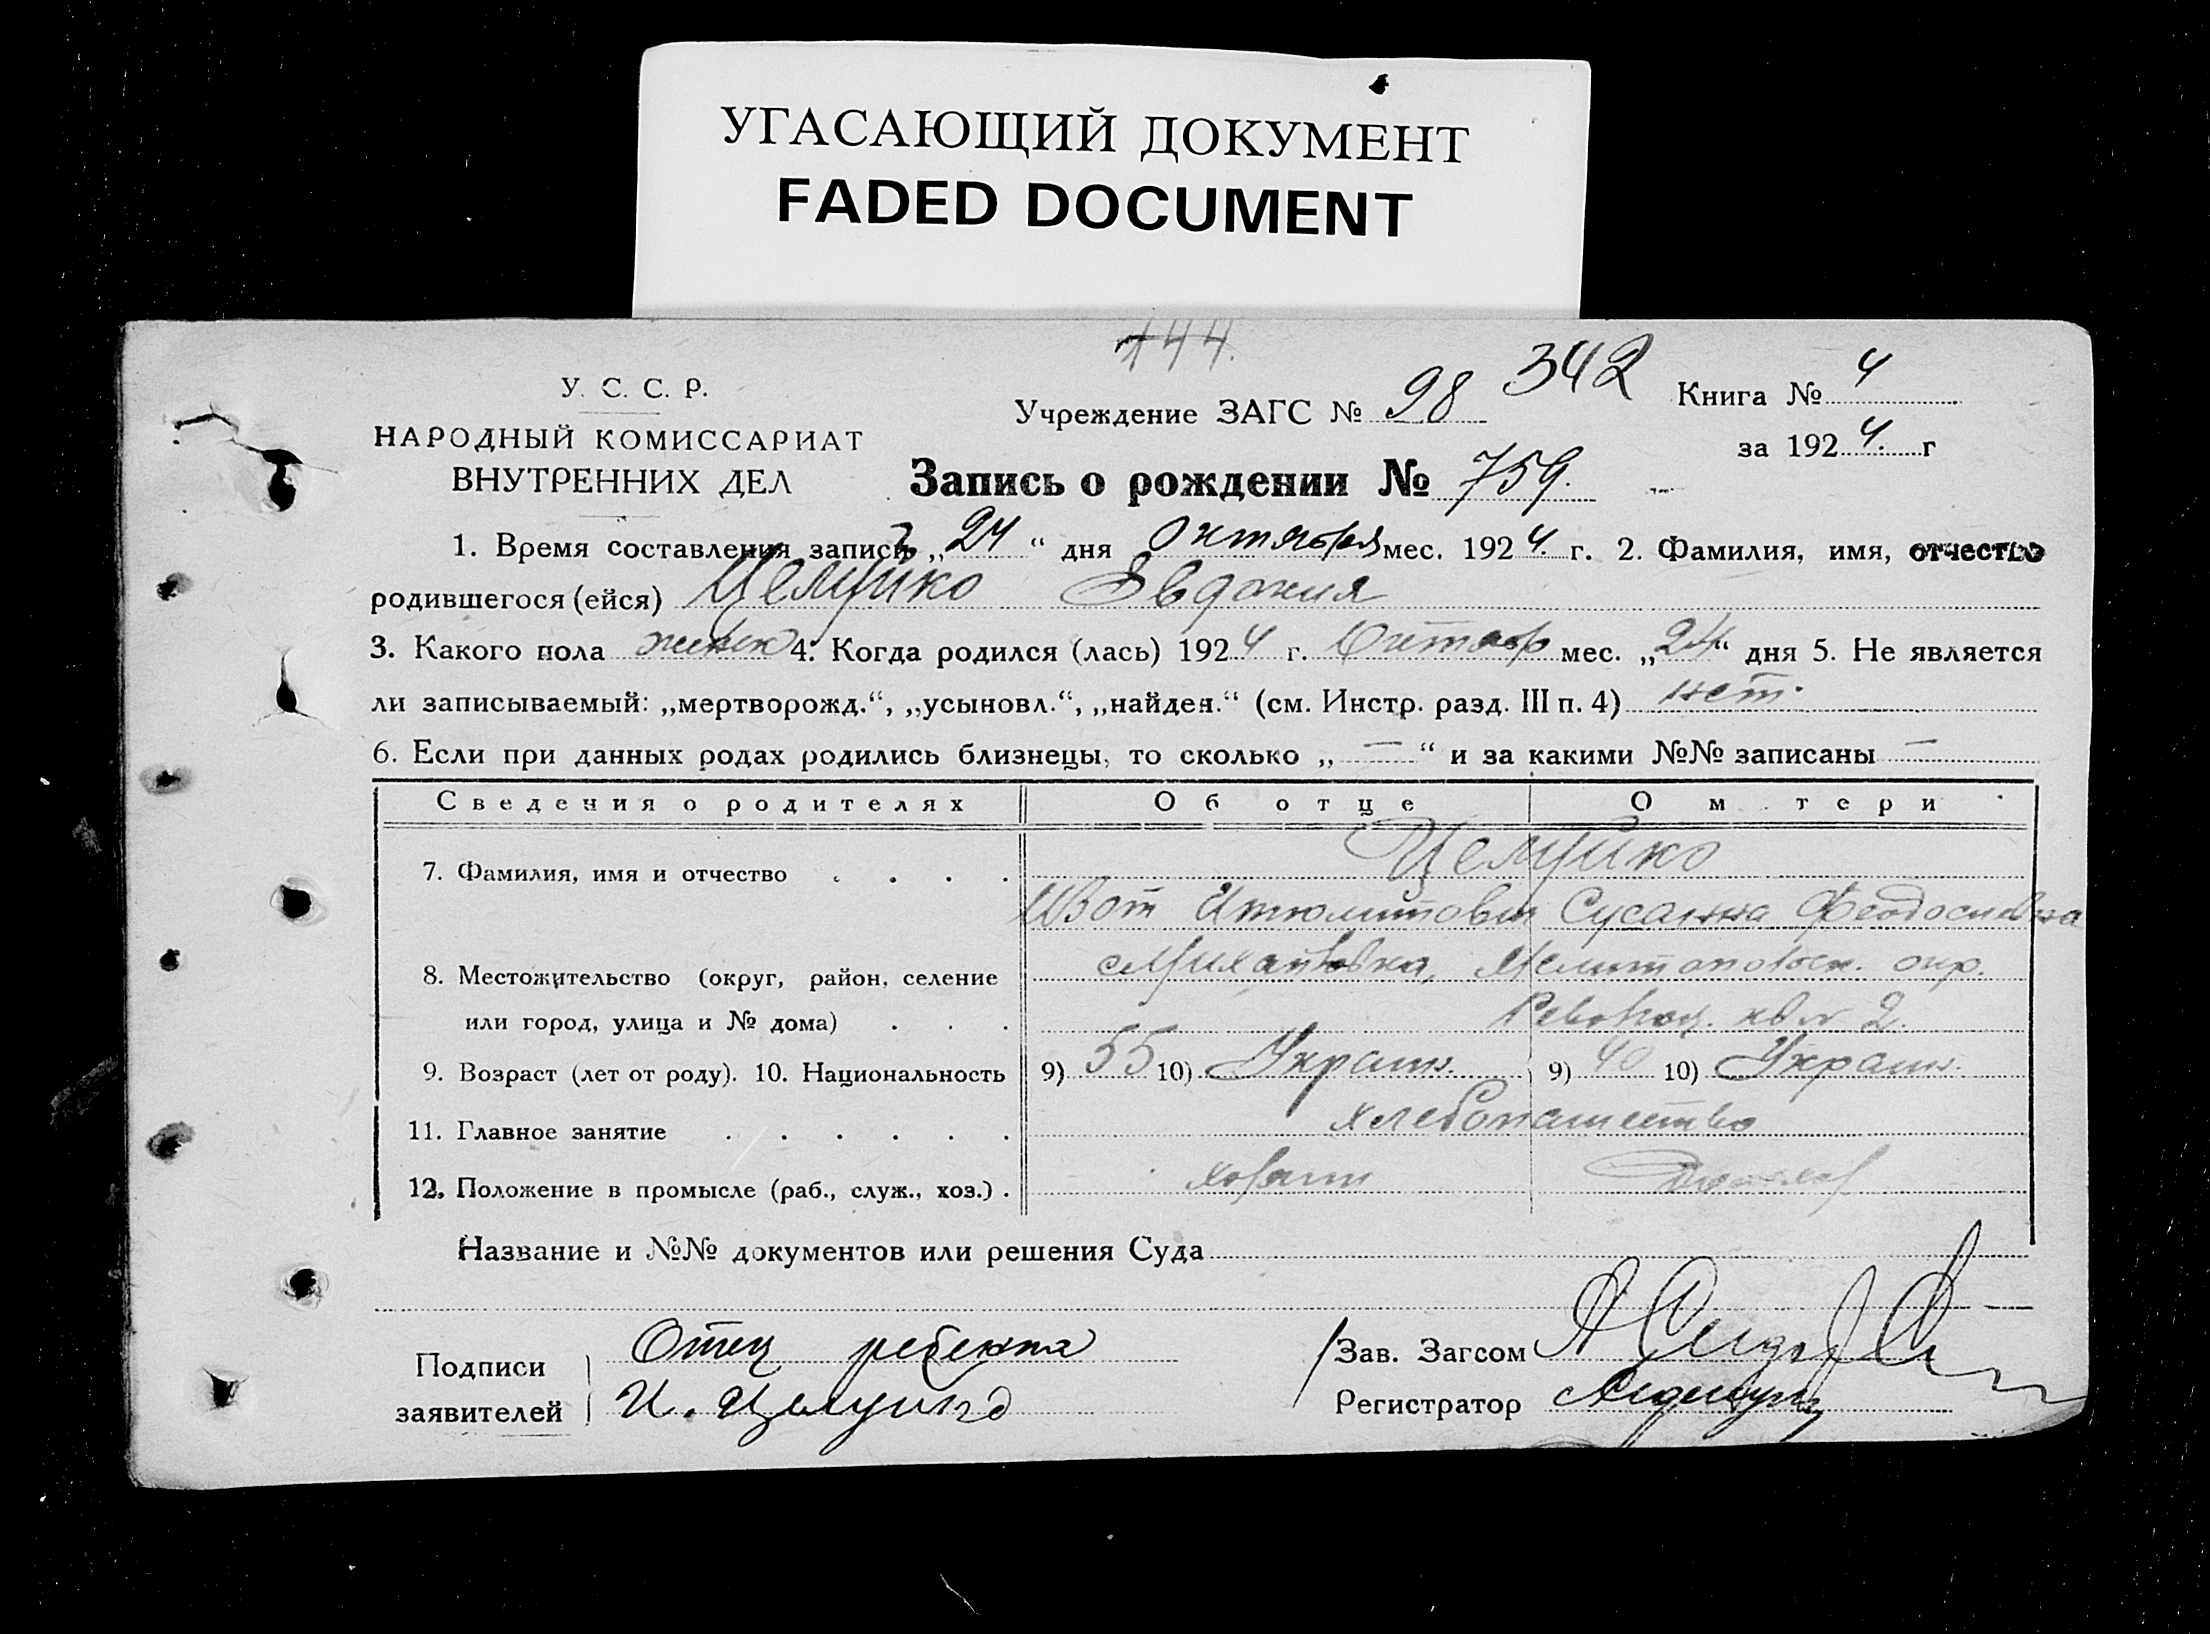 УГАСАЮЩИЙ ДОКУМЕНТ
FADED DOCUMENT
144.
У. С. С. Р.
НАРОДНЫЙ КОМИССАРИАТ
ВНУТРЕННИХ ДЕЛ
Учреждение ЗАГС № 98 342
Книга № 4
за 1924. г
Запись о рождении № 759.
1. Время составления записи „24“ дня октября мес. 1924. г. 2. Фамилия, имя, отчество
родившегося (ейся) Цемуйко Евдокия
3. Какого пола женск 4. Когда родился (лась) 1924 г. Октяб мес. „24“ дня 5. Не является
ли записываемый: „мертворожд.“, „усыновл.“, „найден.“ (см. Инстр. разд. III п. 4) нет.
6. Если при данных родах родились близнецы, то сколько „—“ и за какими №№ записаны —
Сведения о родителях Об отце О м тери
7. Фамилия, имя и отчество Цемуйко
Сусанна Феодосиевна
8. Местожительство (округ, район, селение Михайловка, Мелитопольск. окр.
или город, улица и № дома) кв № 2.
9. Возраст (лет от роду). 10. Национальность 9) 55 10) Украин. 9) 40 10) Украин.
11. Главное занятие хлебопашество
12. Положение в промысле (раб., служ., хоз.)
Название и №№ документов или решения Суда
Подписи заявителей Отец ребенка
И. Цемуйко
Зав. Загсом
Регистратор